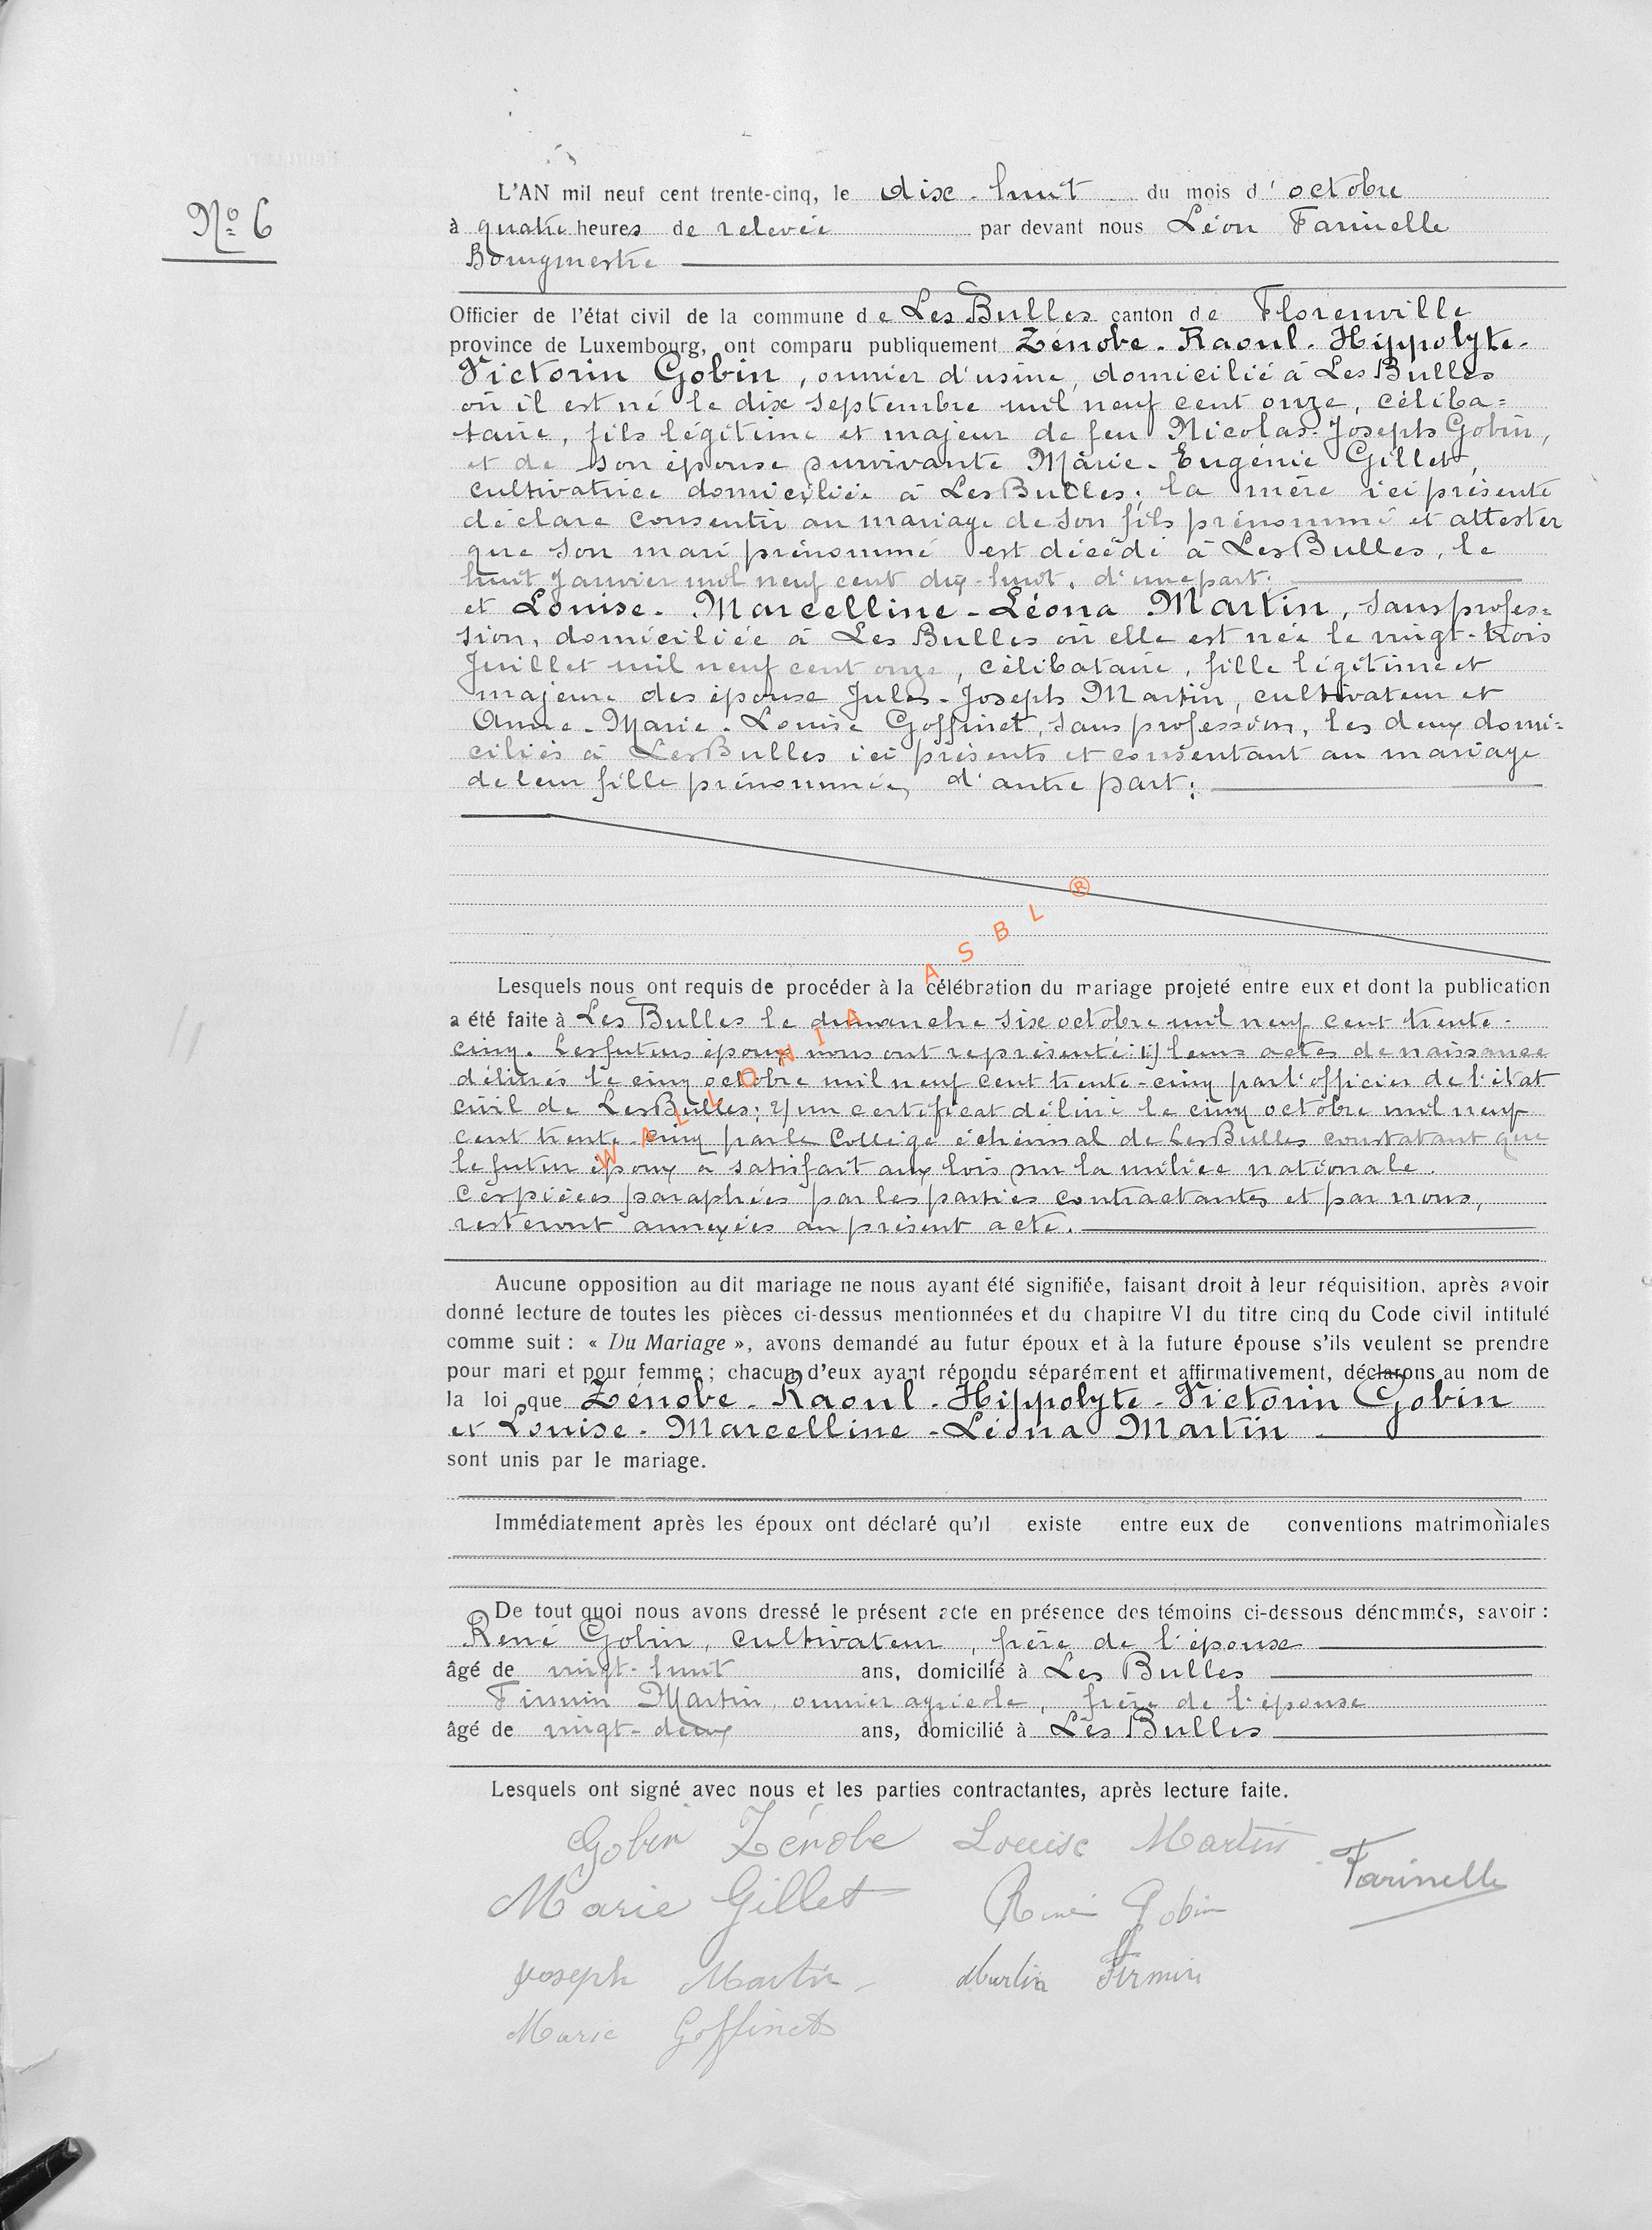 Nº 6
L'AN mil neuf cent trente-cinq, le dix-huit du mois d'octobre
à quatre heures de relevée par devant nous Léon Farinelle
Bourgmestre
Officier de l'état civil de la commune de Les Bulles canton de Florenville
province de Luxembourg, ont comparu publiquement Zénobe-Raoul-Hippolyte-
Victorin Gobin, ouvrier d'usine, domicilié à Les Bulles
où il est né le dix septembre mil neuf cent onze, céliba=
taire, fils légitime et majeur de feu Nicolas-Joseph Gobin,
et de son épouse survivante Marie-Eugénie Gillet,
cultivatrice domiciliée à Les Bulles; la mère ici présente
déclare consentir au mariage de son fils prénommé et attester
que son mari prénommé est décédé à Les Bulles, le
huit Janvier mil neuf cent dix-huit, d'une part.
et Louise-Marcelline-Léona Martin, sans profes=
sion, domiciliée à Les Bulles où elle est née le vingt-trois
Juillet mil neuf cent onze, célibataire, fille légitime et
majeure des épouse Jules-Joseph Martin, cultivateur et
Anne-Marie-Louise Goffinet, sans profession, les deux domi=
ciliés à Les Bulles ici présents et consentant au mariage
de leur fille prénommée, d'autre part;
WALLONIA ASBL ®
Lesquels nous ont requis de procéder à la célébration du mariage projeté entre eux et dont la publication
a été faite à Les Bulles le dimanche six octobre mil neuf cent trente-
cinq. Les futurs époux nous ont représenté: 1) leurs actes de naissance
délivrés le cinq octobre mil neuf cent trente-cinq par l'officier de l'état
civil de Les Bulles; 2) un certificat délivré le cinq octobre mil neuf
cent trente-cinq par le Collège échevinal de Les Bulles constatant que
le futur époux a satisfait aux lois sur la milice nationale.
Ces pièces paraphées par les parties contractantes et par nous,
resteront annexées au présent acte.
Aucune opposition au dit mariage ne nous ayant été signifiée, faisant droit à leur réquisition, après avoir
donné lecture de toutes les pièces ci-dessus mentionnées et du chapitre VI du titre cinq du Code civil intitulé
comme suit : « Du Mariage », avons demandé au futur époux et à la future épouse s'ils veulent se prendre
pour mari et pour femme ; chacun d'eux ayant répondu séparément et affirmativement, déclarons au nom de
la loi que Zénobe-Raoul-Hippolyte-Victorin Gobin
et Louise-Marcelline-Léona Martin
sont unis par le mariage.
Immédiatement après les époux ont déclaré qu'il existe entre eux de conventions matrimoniales
De tout quoi nous avons dressé le présent acte en présence des témoins ci-dessous dénommés, savoir :
René Gobin, cultivateur, frère de l'épouse
âgé de vingt-huit ans, domicilié à Les Bulles
Firmin Martin, ouvrier agricole, frère de l'épouse
âgé de vingt-deux ans, domicilié à Les Bulles
Lesquels ont signé avec nous et les parties contractantes, après lecture faite.
Gobin Zénobe Louise Martin
Farinelle
Marie Gillet René Gobin
Joseph Martin Martin Firmin
Marie Goffinet